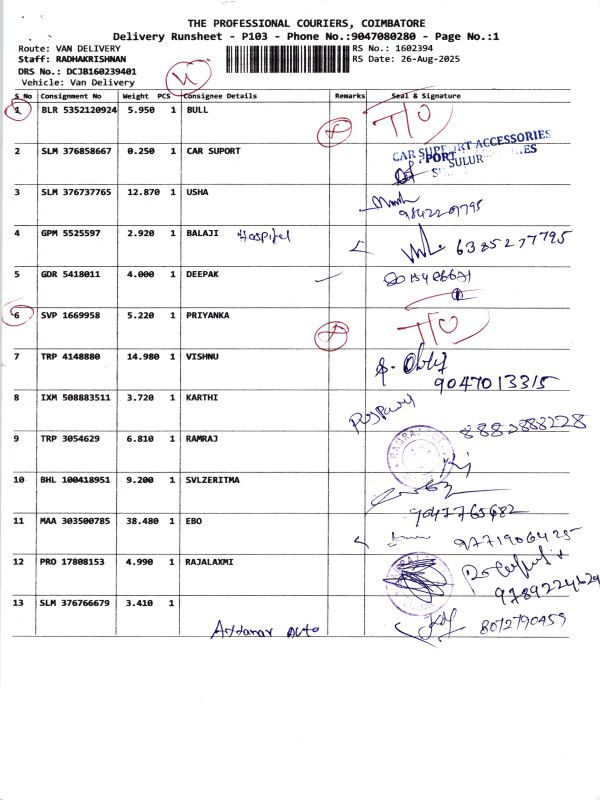 THE PROFESSIONAL COURIERS, COIMBATORE
Delivery Runsheet - P103 - Phone No.:9047080280 - Page No.:1
Route: VAN DELIVERY RS No.: 1602394
Staff: RADHAKRISHNAN RS Date: 26-Aug-2025
DRS No.: DCJB160239401
Vehicle: Van Delivery
S No Consignment No Weight PCS Consignee Details Remarks Seal & Signature
1 BLR 5352120924 5.950 1 BULL T/O
2 SLM 376858667 0.250 1 CAR SUPORT CAR SUPPORT ACCESSORIES
SULUR
3 SLM 376737765 12.870 1 USHA
9842207795
4 GPM 5525597 2.920 1 BALAJI Hospitel 6385277795
5 GDR 5418011 4.000 1 DEEPAK
6 SVP 1669958 5.220 1 PRIYANKA T/O
7 TRP 4148880 14.980 1 VISHNU
9047013315
8 IXM 508883511 3.720 1 KARTHI
9 TRP 3054629 6.810 1 RAMRAJ
10 BHL 100418951 9.200 1 SVLZERITMA
9047765682
11 MAA 303500785 38.480 1 EBO 9771906425
12 PRO 17808153 4.990 1 RAJALAXMI
13 SLM 376766679 3.410 1
8072790459